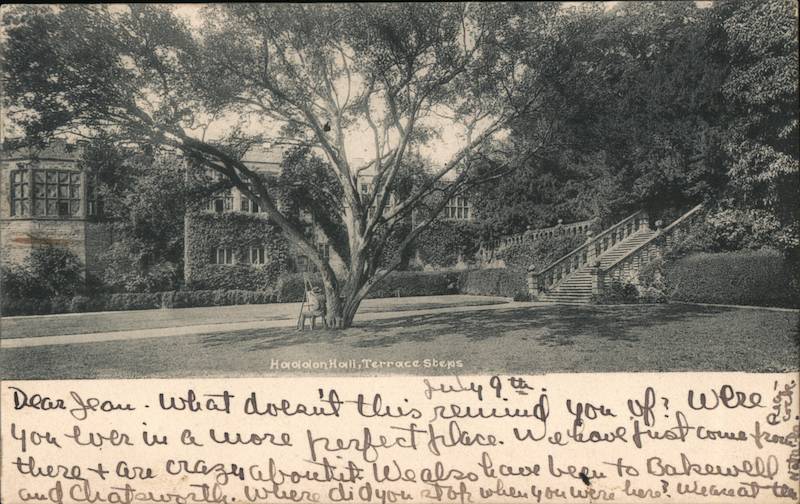 Haddon Hall, Terrace Steps
July 9th.
Dear Jean. What doesn't this remind you of? Were
you ever in a more perfect place. We have just come from
there + are crazy about it. We also have been to Bakewell
and Chatsworth. Where did you stop when you were here? We are at